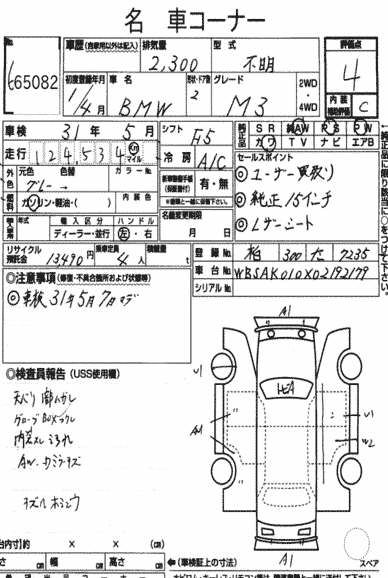 名車コーナー
No.
65082
車歴(自家用以外は記入) 排気量 型式
2,300 不明
評価点
4
初度登録年月 車名 形状・ドア数 グレード
1/4月 BMW 2 M3
2WD
・
4WD
内装
補助評価 C
車検 31年5月
シフト F5
純正品 SR 純AW PS PW
カワ TV ナビ エアB
走行 124,534 Km マイル
冷房 A/C
セールスポイント
◎ユーザー買取り
◎純正15インチ
◎Lザーシート
外色 元色 色替 カラーNo.
グレー→
新車整備手帳
(保証書付) 有・無
燃料 ガソリン・軽油・( ) 内装色
輸入車 年式 輸入区分 ハンドル
ディーラー・並行 左・右
名義変更期限
月 日
リサイクル預託金 13490円 乗車定員 4人 積載量 t
登録No. 柏 300 た 7235
車台No. WBSAK010X02192179
シリアルNo.
◎注意事項(修復・不具合箇所および状態等)
◎車検31年5月7日マデ
◎検査員報告(USS使用欄)
天バリ
グローブBOX
内装スレ
AW.
A1
U1
U1
AA1
W2
A1
スペア
台内寸) 約 × × (cm)
さ cm 幅 cm 高さ cm
←(車検証上の寸法)
←純正品に限り該当に○をつけて下さい。